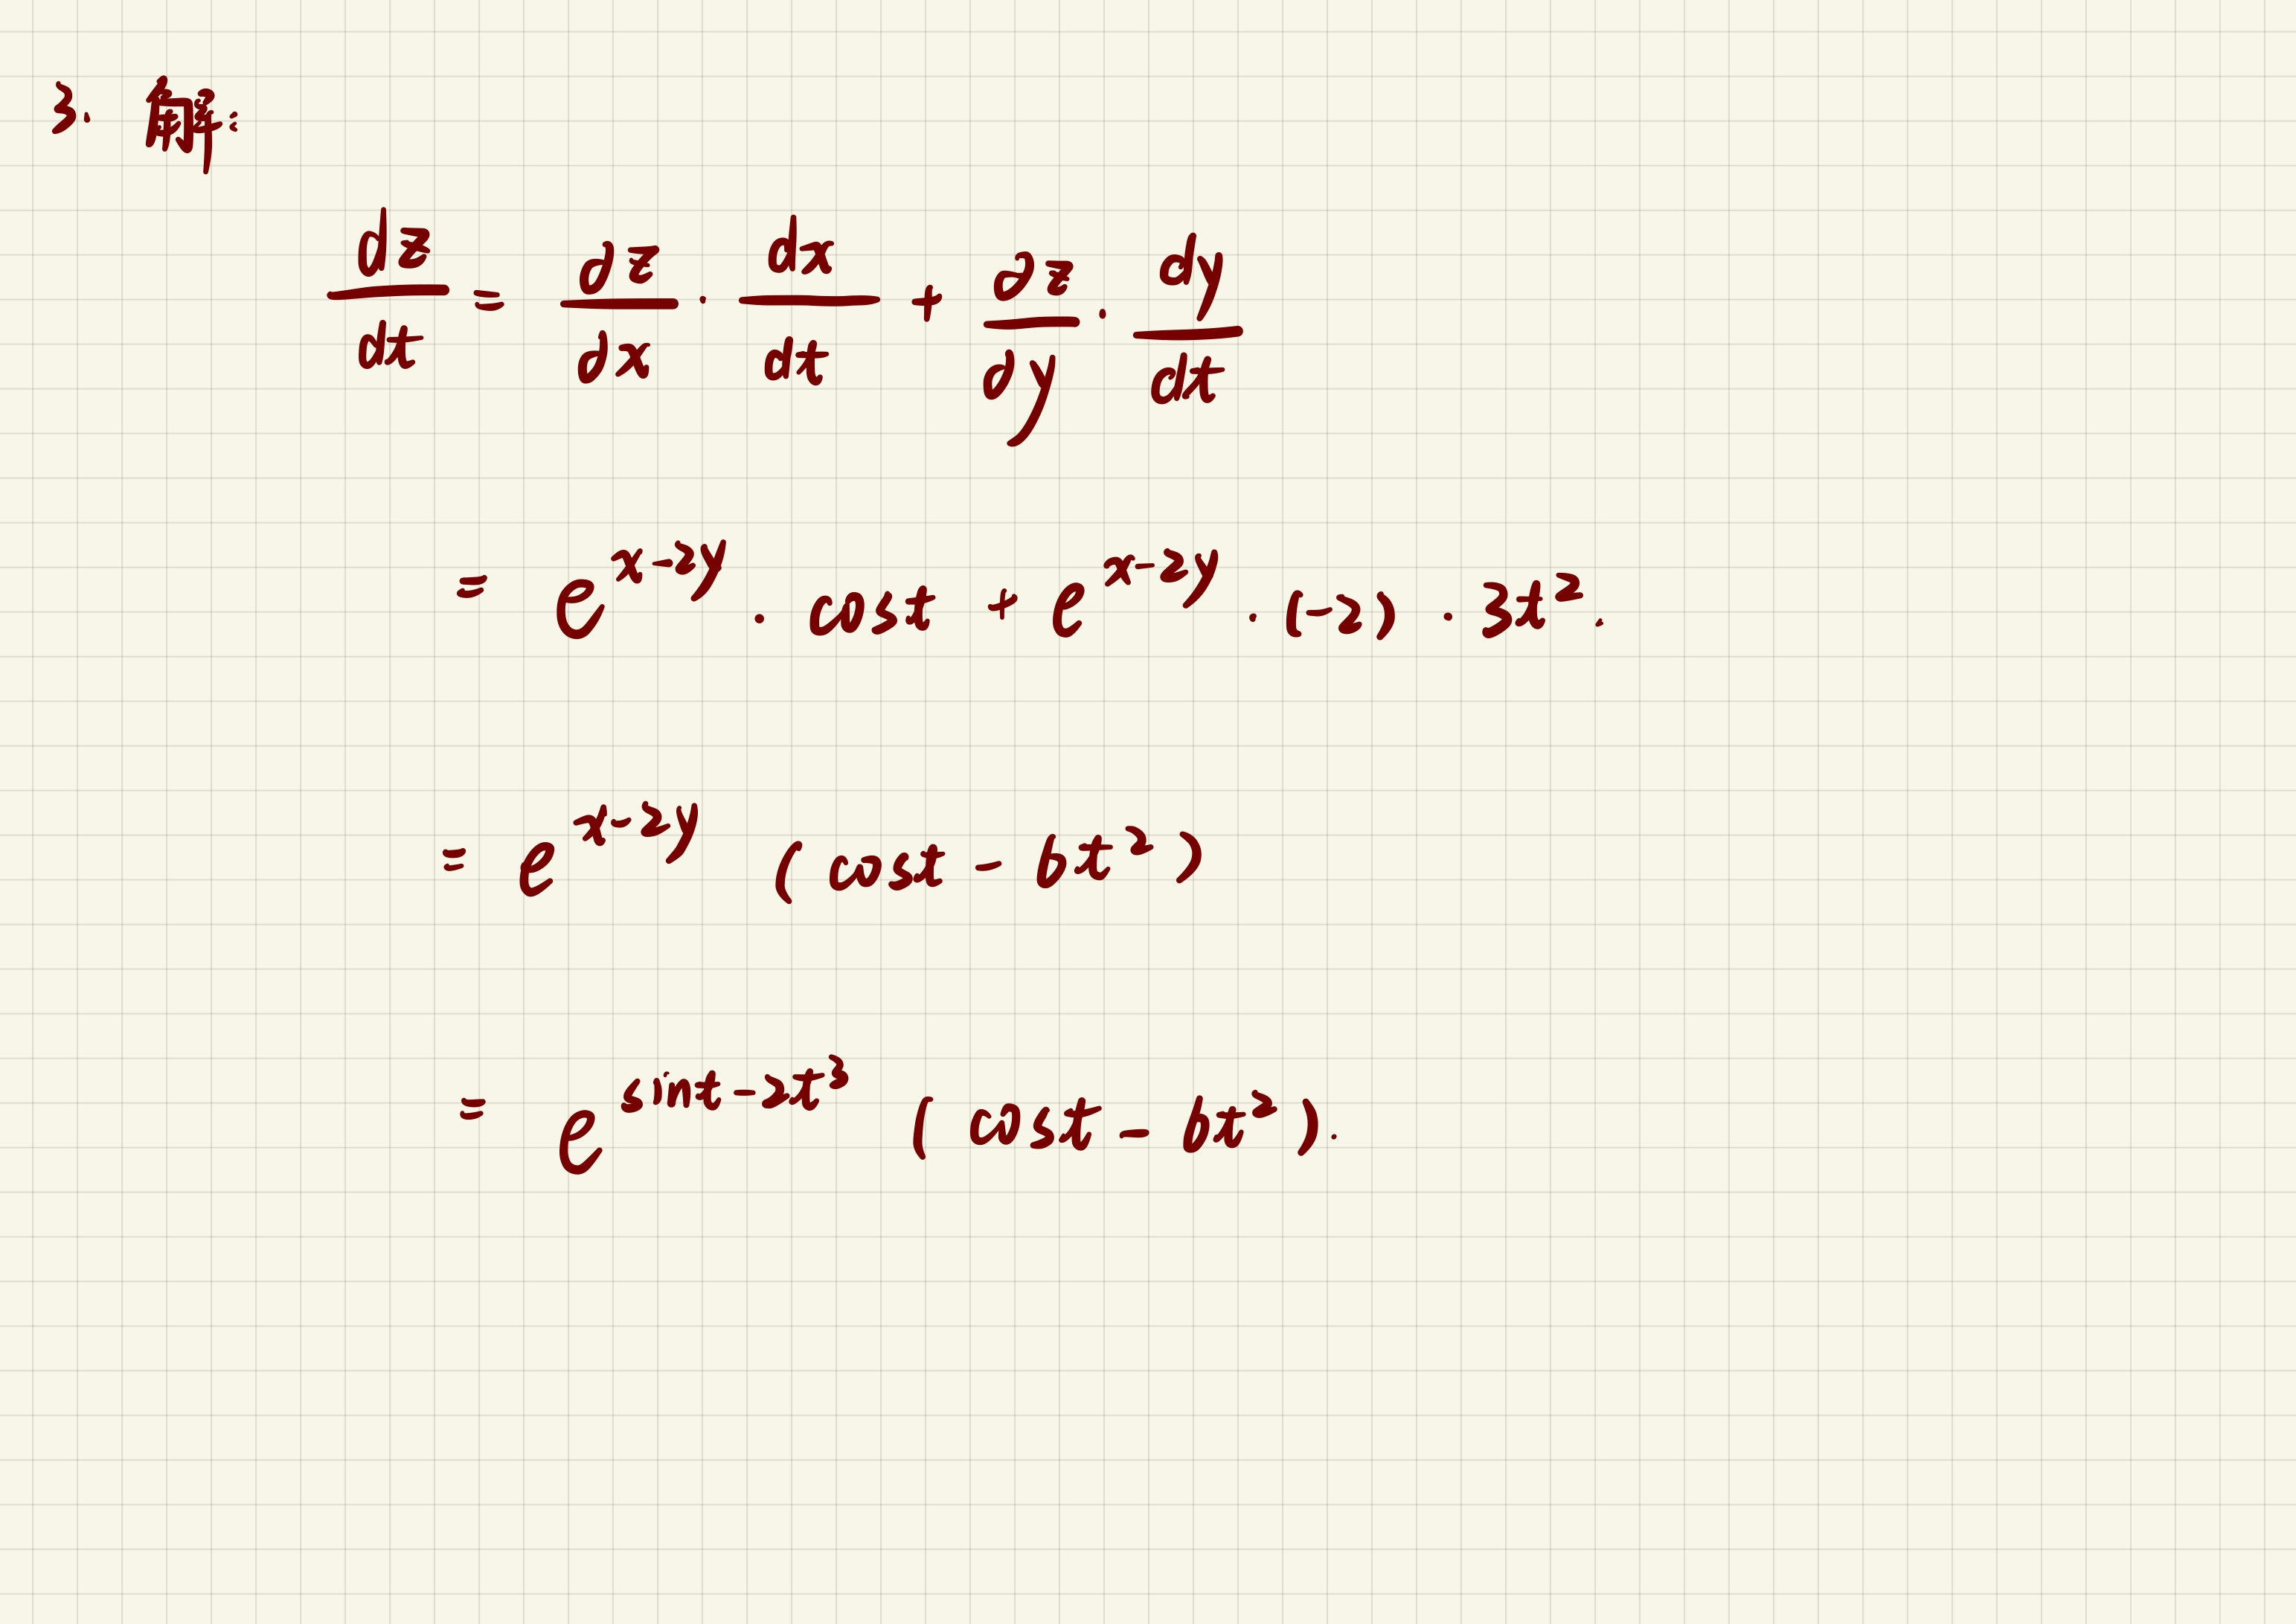 3. 解:
dz/dt = ∂z/∂x · dx/dt + ∂z/∂y · dy/dt
= e^{x-2y} · cost + e^{x-2y} · (-2) · 3t².
= e^{x-2y} (cost - 6t²)
= e^{sint-2t³} (cost - 6t²).